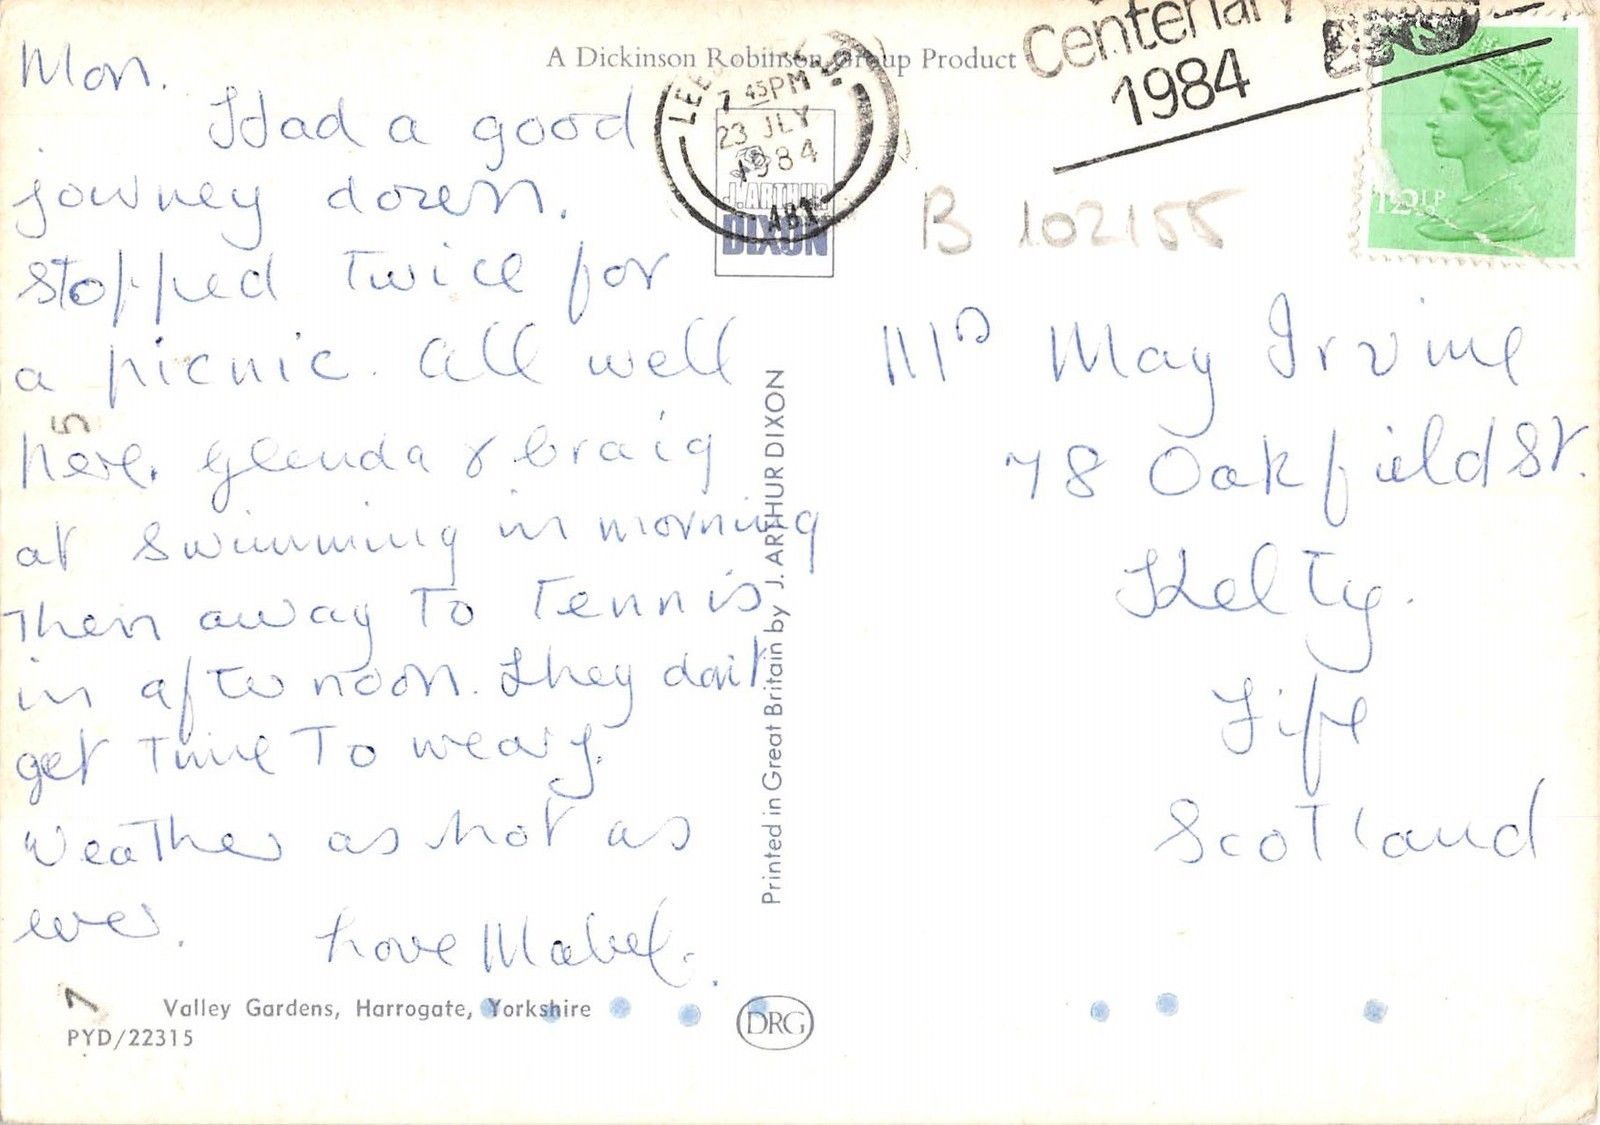 A Dickinson Robinson Group Product
Centenary
1984
7 45PM
23 JLY
1984
J. ARTHUR
DIXON
12½P
B 102155
Mon.
Had a good
journey down.
Stopped twice for
a picnic. All well
here. Glenda & Craig
at swimming in morning
then away to tennis
in afternoon. They don't
get time to weary.
Weather as hot as
ever.
Love Mabel.
5
7
Printed in Great Britain by J. ARTHUR DIXON
Mrs May Irvine
78 Oakfield St.
Kelty.
Fife
Scotland
Valley Gardens, Harrogate, Yorkshire
PYD/22315
DRG